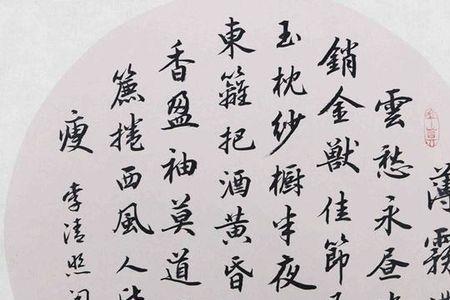 薄霧
雲愁永昼
銷金獸佳節
玉枕紗櫥半夜
東籬把酒黃昏
香盈袖莫道
簾捲西風人
瘦
李清照